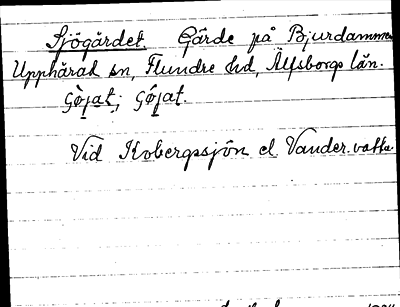 Sjögärdet. Gärde på Bjurdammen
Upphärad sn, Flundre hd, Älfsborgs län.
Vid Kobergssjön el. Vander.vattn